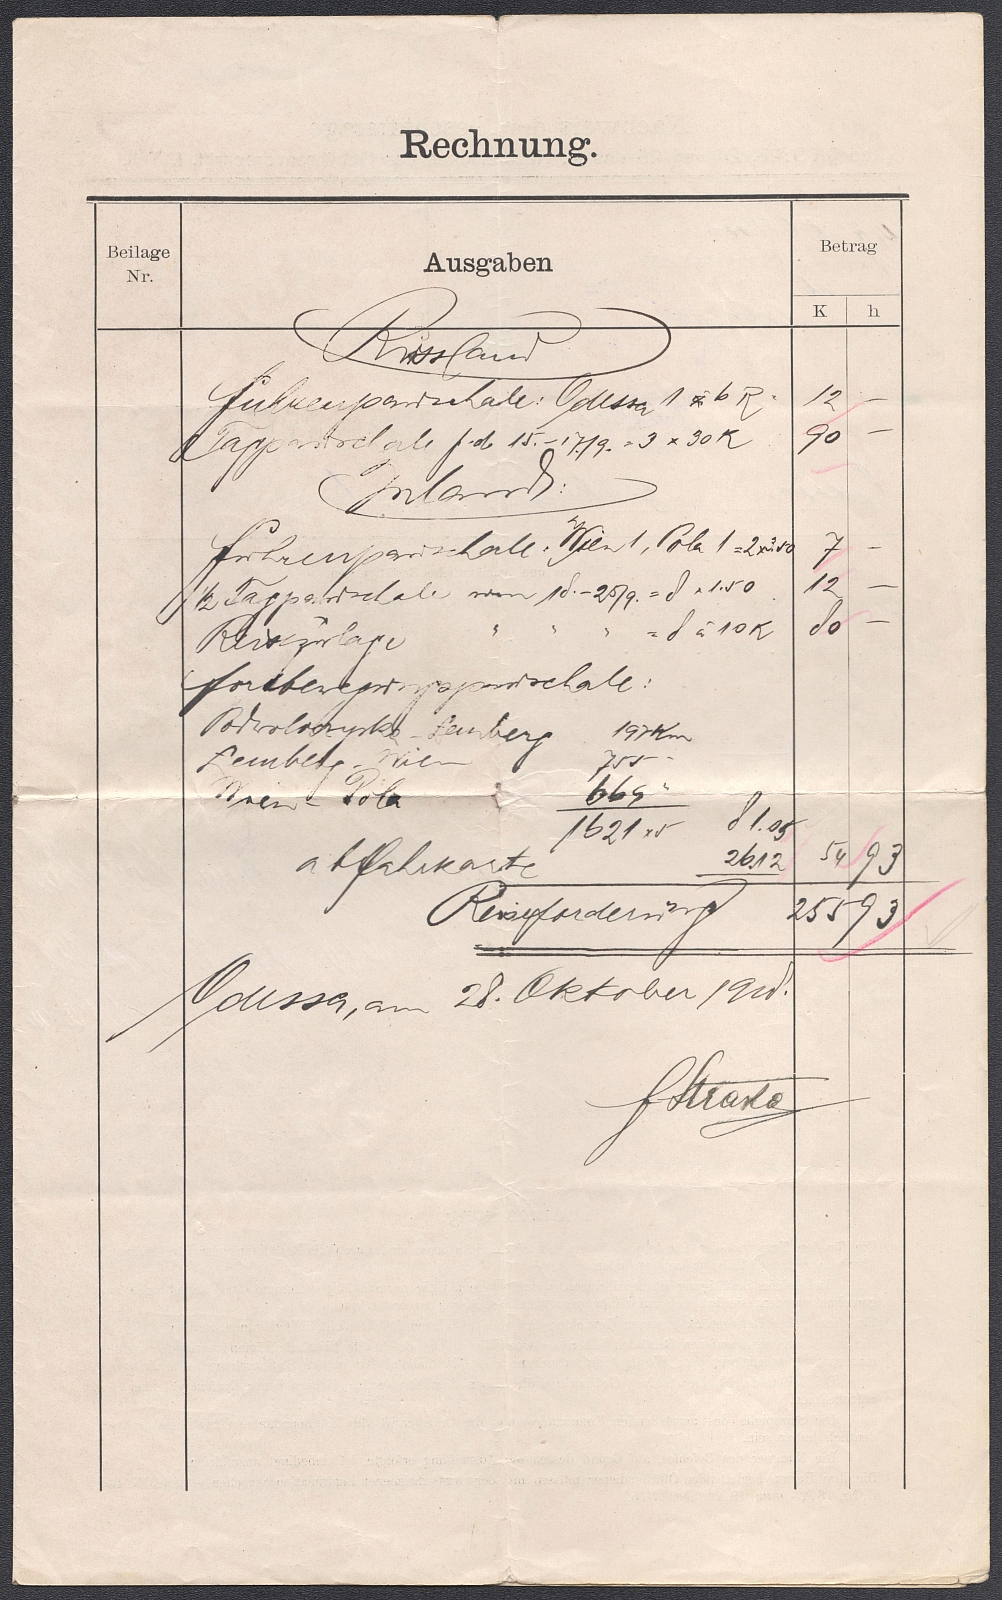 Rechnung.
Beilage Nr.
Ausgaben
Betrag
K h
Russland
Fuhrenpauschale: Odessa 1 à 6 R. 12 –
Tagpauschale f. d. 15.–17./9. = 3 x 30 K 90 –
Inland:
Fuhrenpauschale: Wien 1, Pola 1 = 2 x 3.50 7 –
1/2 Tagpauschale vom 18.–25/9. = 8 x 1.50 12 –
Reisezulage " " " = 8 à 10 K 80 –
Fortbewegungspauschale:
Podwoloczyska – Lemberg 197 Km
Lemberg – Wien 755 "
Wien – Pola 669 "
1621 x 5 81.05
ab Fahrkarte 26.12 54 93
Reiseforderung 255 93
Odessa, am 28. Oktober 1918.
Straka